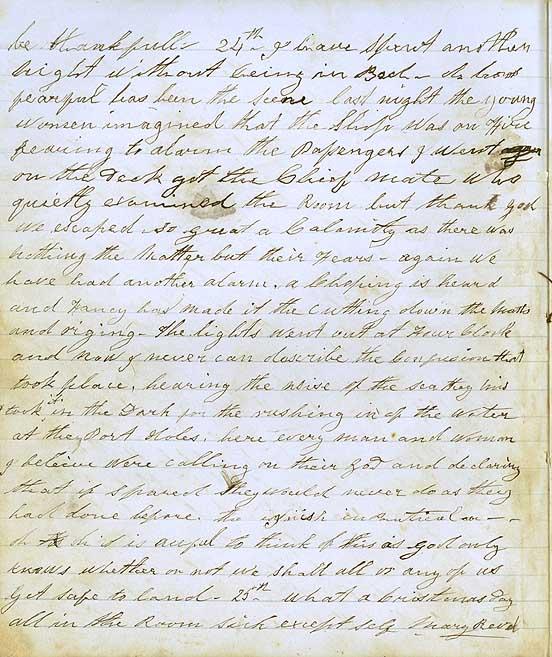 be thankfull - 24th I have spent another
night without being in Bed - Oh how
fearful has been the scene last night the young
women imagined that the Ship was on Fire
fearing to alarm the Passengers I went
on the Deck got the Chief mate who
quietly examined the Room but thank god
we escaped so great a Calamity as there was
nothing the Matter but their Fears - again we
have had another alarm. a Choping is heard
and Fancy has made it the cutting down the Masts
and riging - The lights went out at Four Clock
and Now I never can describe the Confusion that
took place, hearing the noise of the sea they mis
took it in the Dark for the rushing in of the water
at the Port Holes, here every man and woman
I beleive were calling on their God and declaring
that if spared they would never do as they
had done before. the
is awful to think of this as god only
knows whether or not we shall all or any of us
get safe to land - 25th what a Cristmas day
all in the Room sick except self Mary Read